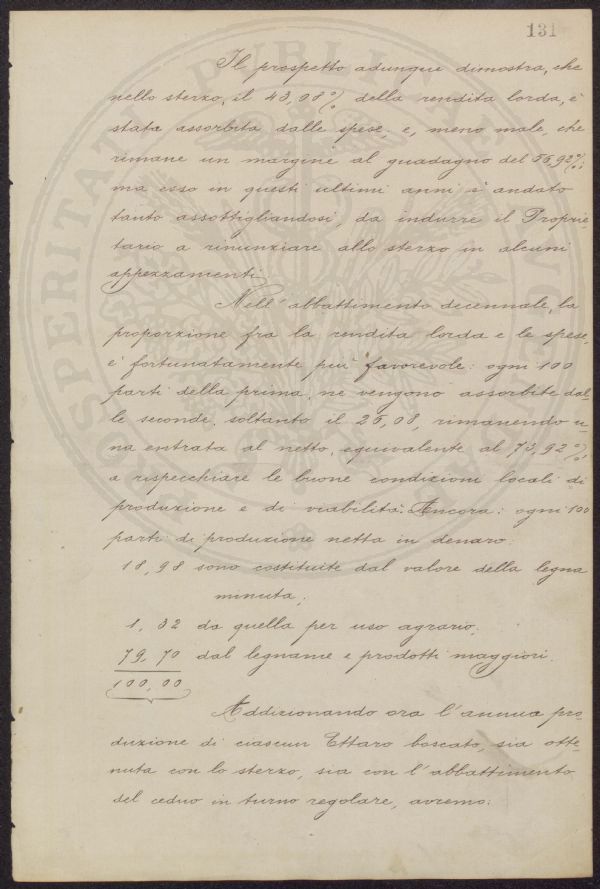 131
Il prospetto adunque dimostra, che
nello sterzo, il 43,08% della rendita lorda, è
stata assorbita dalle spese, e, meno male, che
rimane un margine al guadagno del 56,92%;
ma esso in questi ultimi anni è andato
tanto assottigliandosi, da indurre il Proprie-
tario a rinunziare allo sterzo in alcuni
appezzamenti.
Nell'abbattimento decennale, la
proporzione fra la rendita lorda e le spese,
e' fortunatamente più favorevole: ogni 100
parti della prima, ne vengono assorbite dal-
le seconde, soltanto il 26,08, rimanendo u-
na entrata al netto, equivalente al 73,92%,
a rispecchiare le buone condizioni locali di
produzione e di viabilità. Ancora: ogni 100
parti di produzione netta in denaro:
18,98 sono costituite dal valore della legna
minuta;
1,32 da quella per uso agrario;
79,70 dal legname e prodotti maggiori.
100,00
Addizionando ora l'annua pro-
duzione di ciascun Ettaro boscato, sia otte-
nuta con lo sterzo, sia con l'abbattimento
del ceduo in turno regolare, avremo: